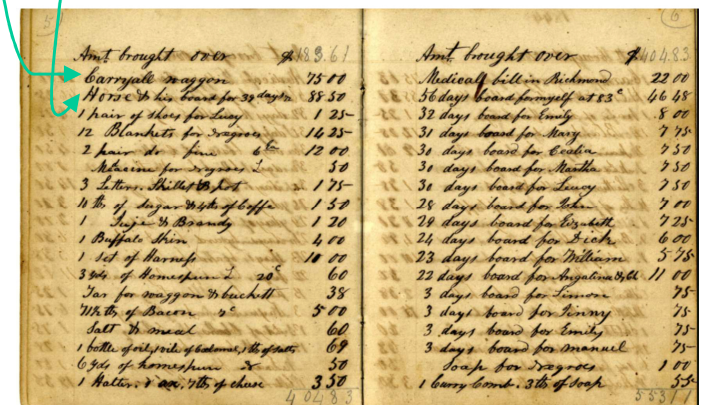 5
Amt brought over $183.61
Carryall waggon 75 00
Horse & his board for 39 days 88 50
1 pair of shoes for Lucy 1 25
12 Blankets for Negroes 14 25
2 pair do fine 12 00
Medicine for Negroes 50
3 Setters. Skillet & pot 1 75
10 lbs of sugar & 4 lbs of Coffe 1 50
1 & Brandy 1 20
1 Buffalo Skin 4 00
1 Set of Harness 10 00
3 yds of Homespun 20c 60
Tar for waggon & buckett 38
71½ lbs of Bacon 7c 5 00
Salt & meal 60
1 bottle of oil, 1 vile of Calomel, 1 lb of salts 69
6 yds of homespun 50
1 Halter. 1 ax. 7 lb of cheese 3 50
404 83
6
Amt brought over $404.83
Medical bill in Richmond 22 00
56 days board for myself at 83c 46 48
32 days board for Emily 8 00
31 days board for Mary 7 75
30 days board for Cecelia 7 50
30 days board for Martha 7 50
30 days board for Lucy 7 50
28 days board for John 7 00
29 days board for Elizabeth 7 25
24 days board for Dick 6 00
23 days board for William 5 75
22 days board for Angalina & 11 00
3 days board for Simon 75
3 days board for Jinny 75
3 days board for Emily 75
3 days board for manuel 75
Soap for Negroes 1 00
1 Curry Comb. 3 lb of Soap 55
553 11